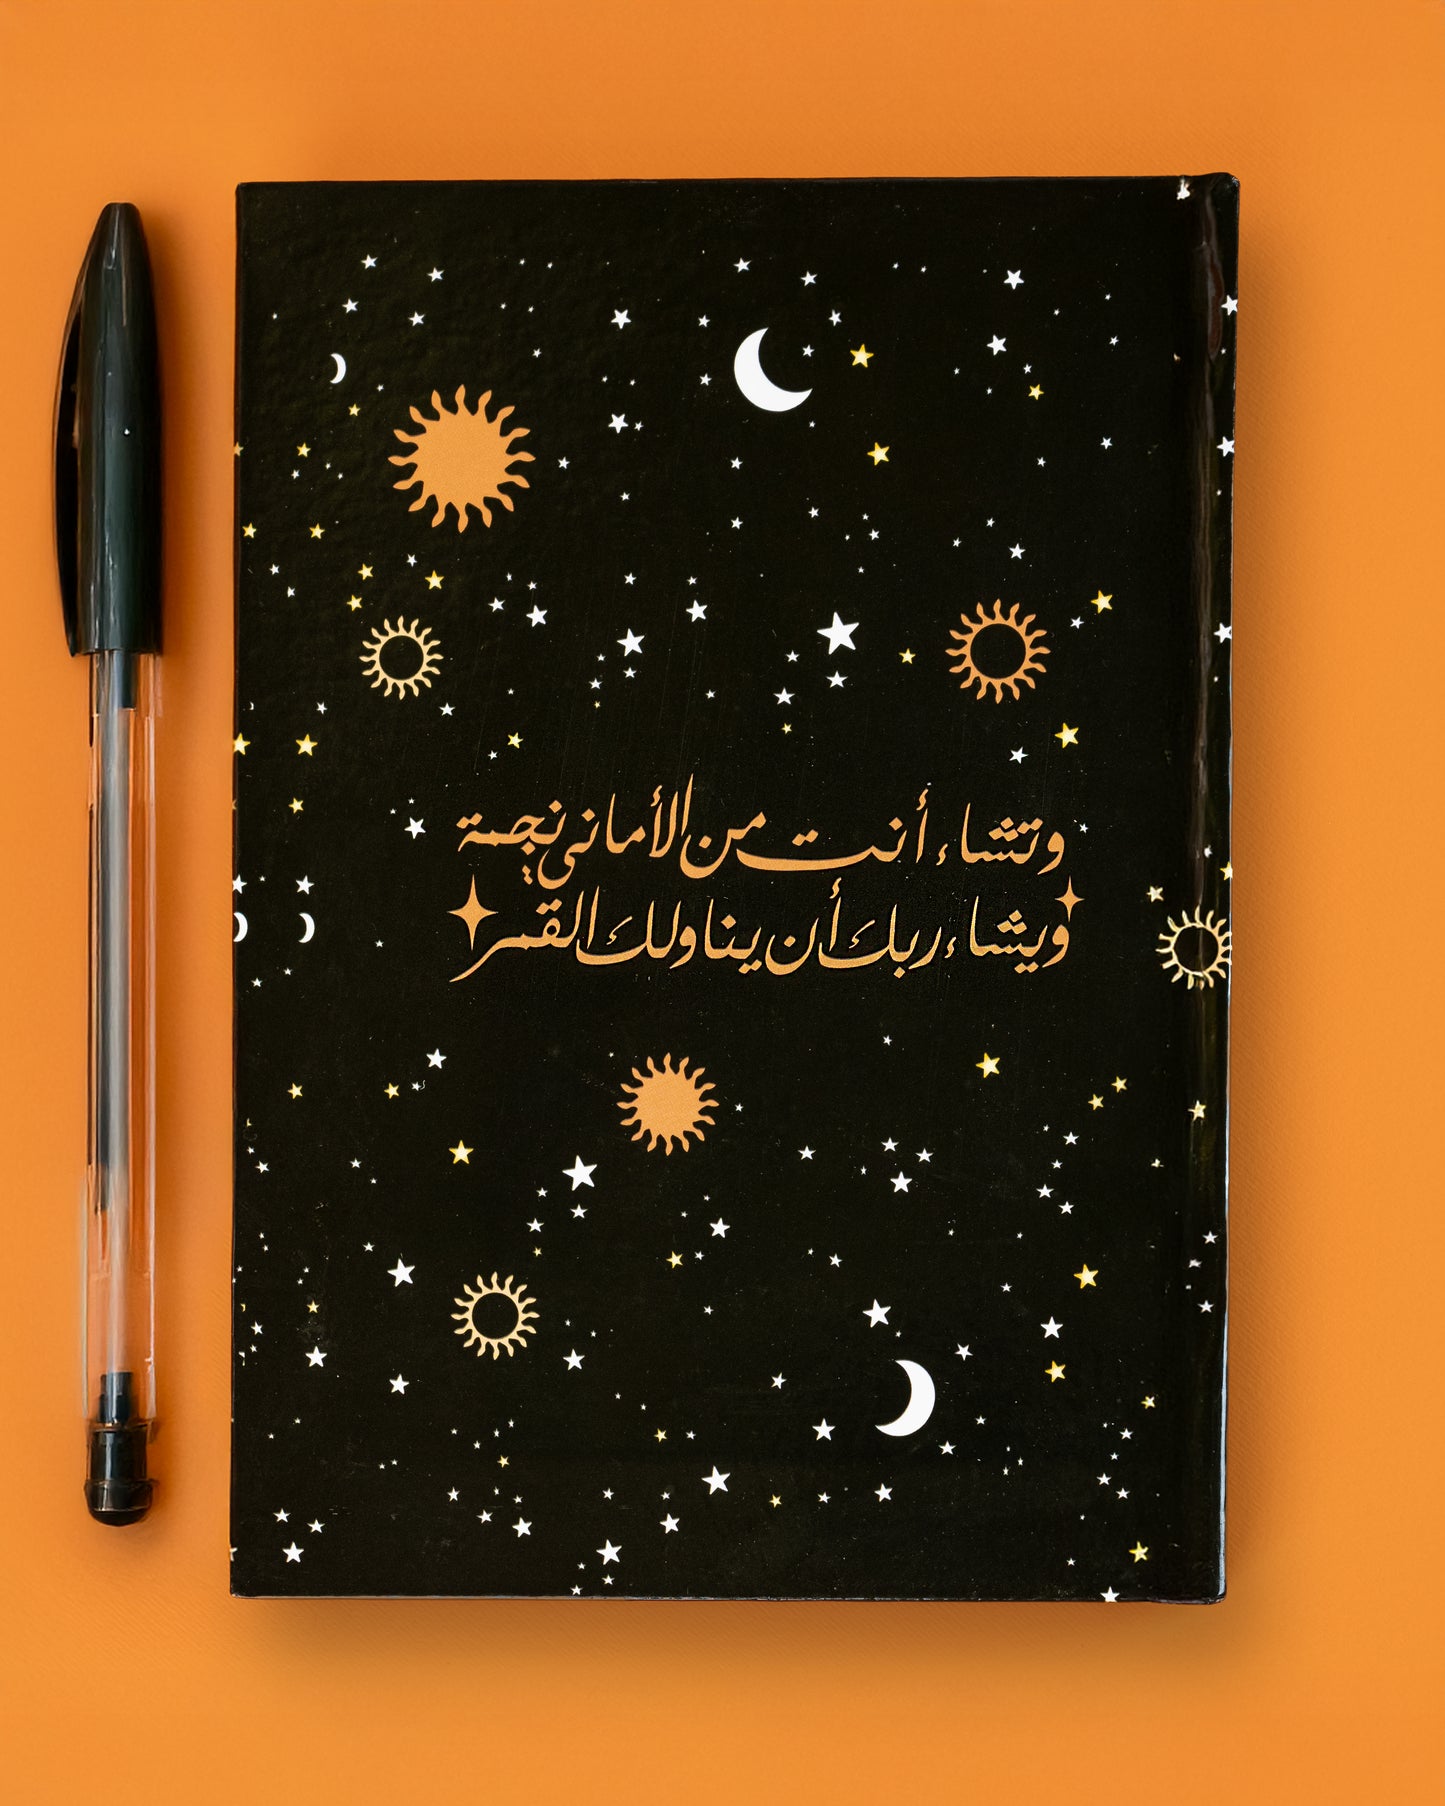 وتشاء أنت من الأماني نجمة
ويشاء ربك أن يناولك القمر